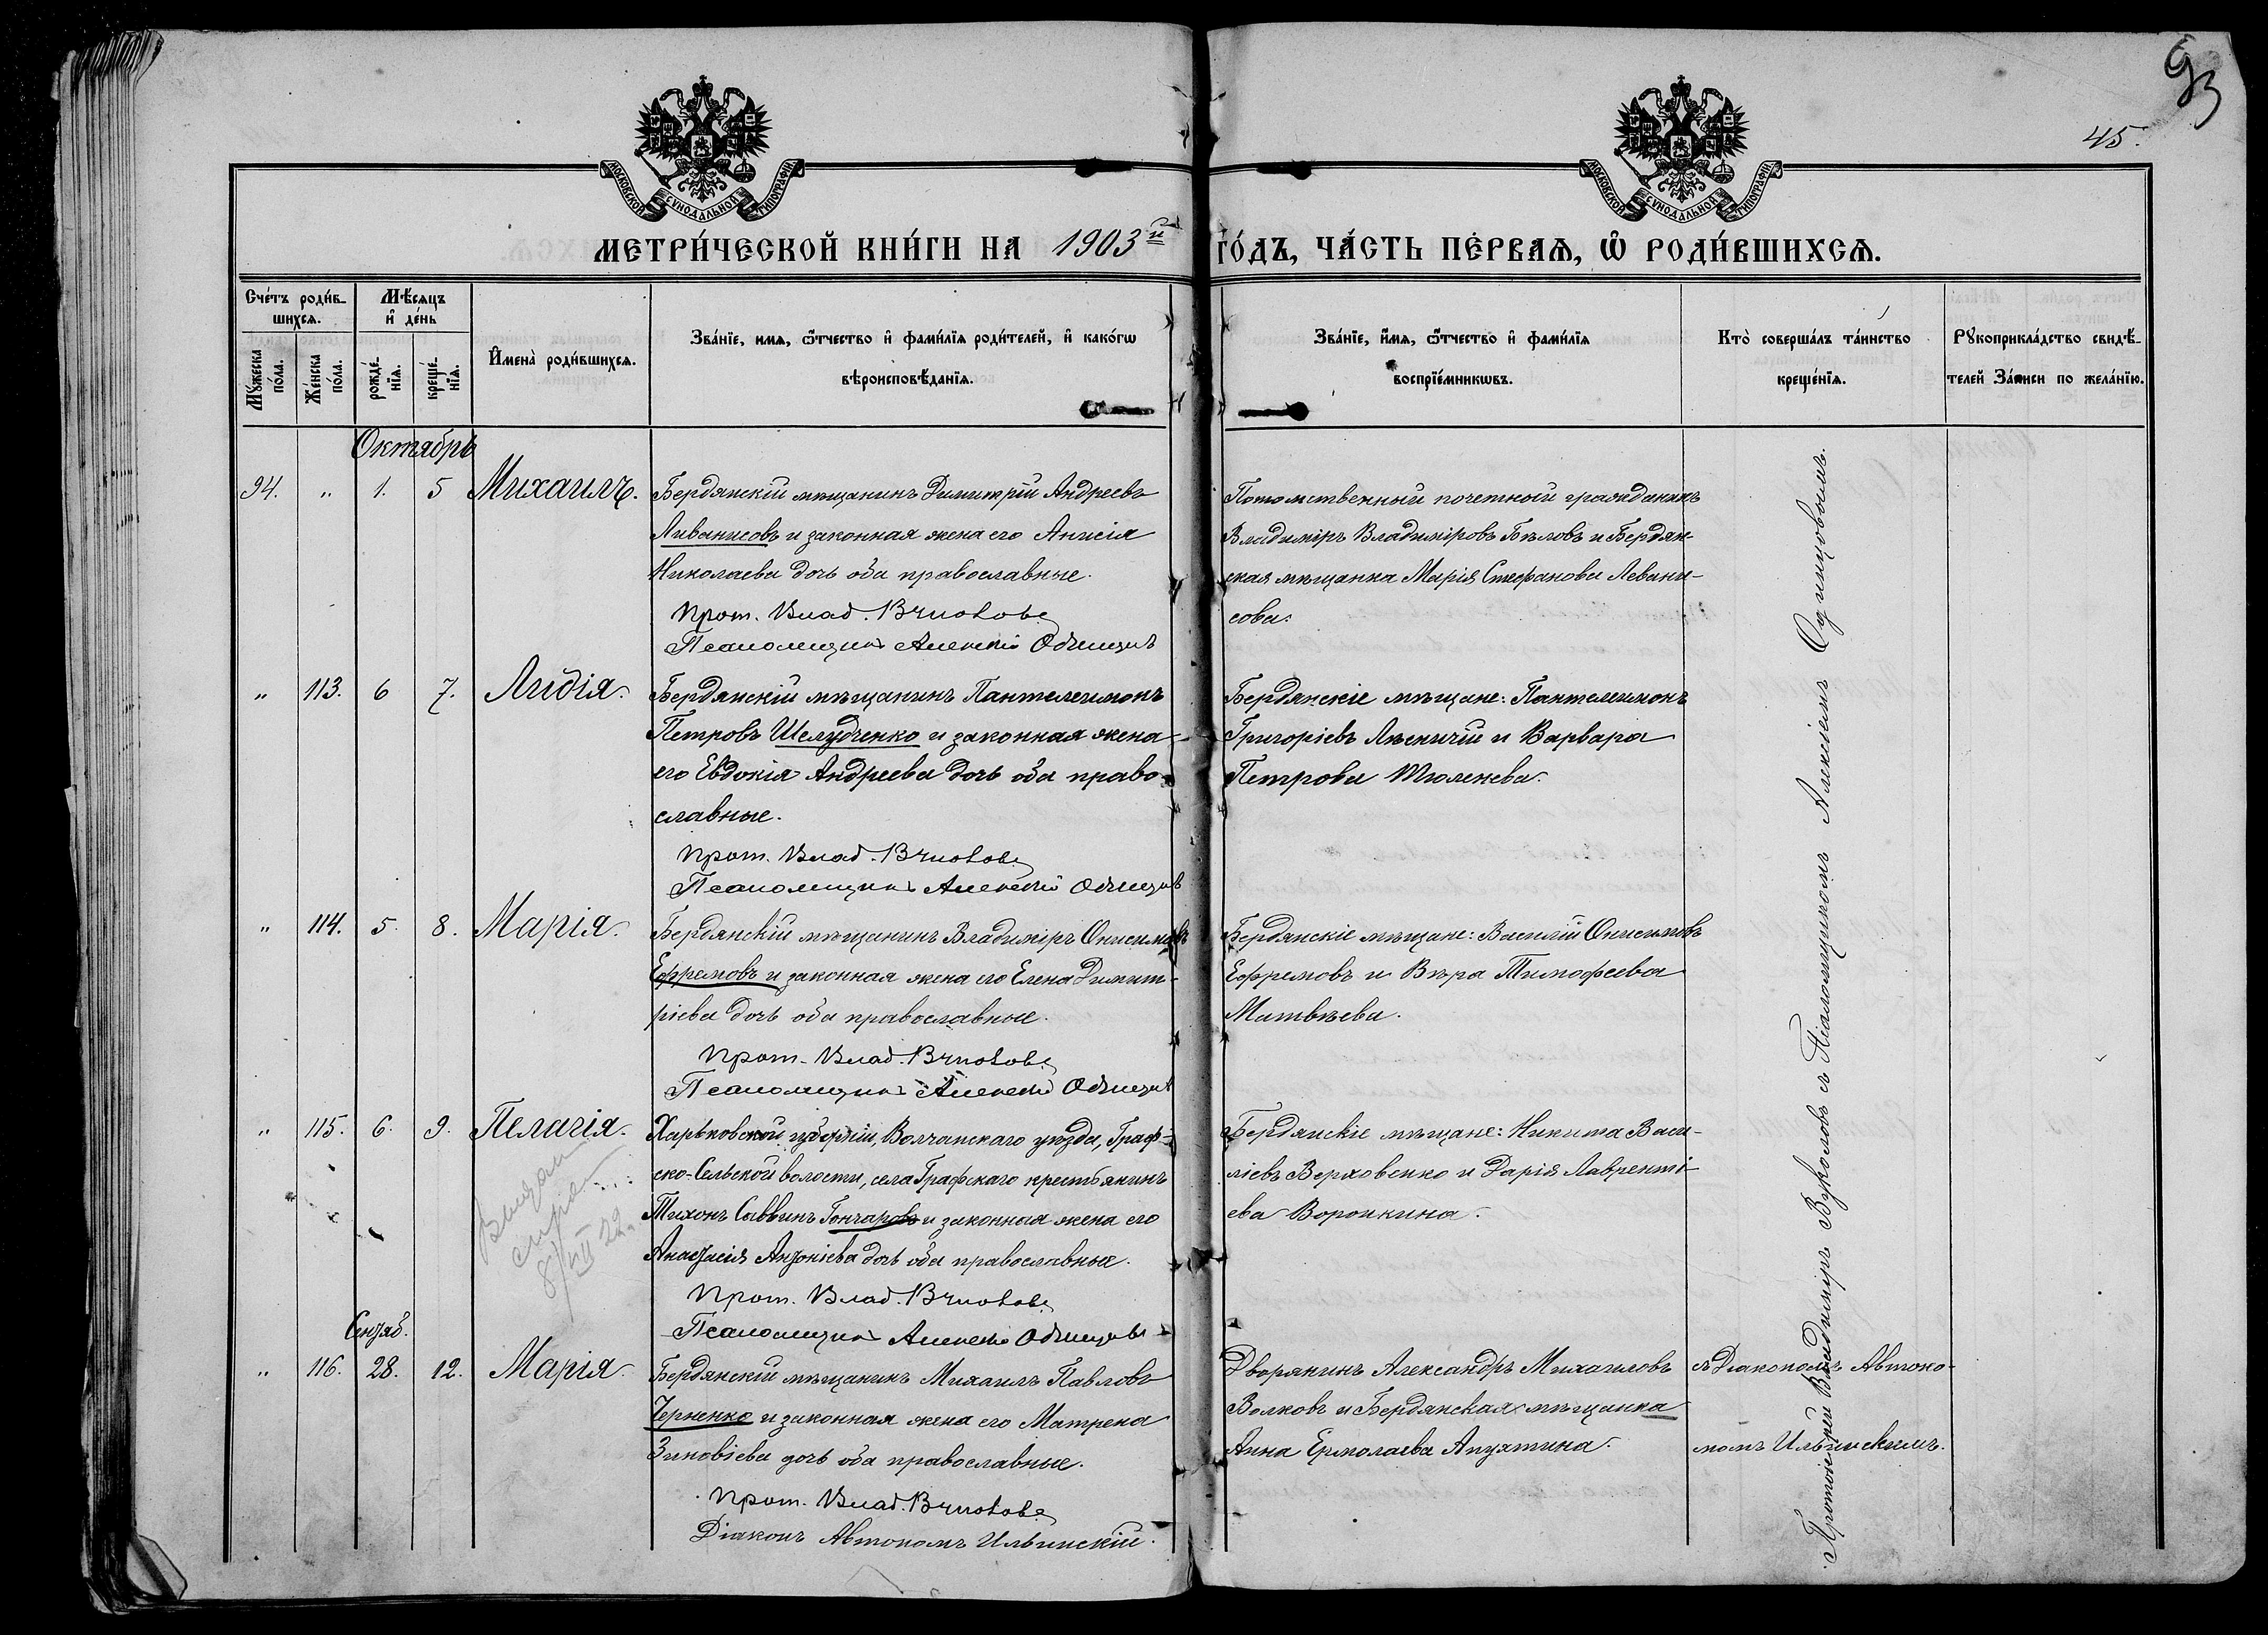 93
45.
МОСКОВСКОЙ СѴНОДАЛЬНОЙ ТИПОГРАФІИ
МОСКОВСКОЙ СѴНОДАЛЬНОЙ ТИПОГРАФІИ
МЕТРИ́ЧЕСКОЙ КНИ́ГИ НА 1903й ГО́ДЪ, ЧА́СТЬ ПЕ́РВАѦ, Ѽ РОДИ́ВШИХСѦ.
Сче́тъ роди́в-
шихсѧ.
Мꙋ́жеска
по́ла.
Же́нска
по́ла.
Мѣ́сѧцъ
и҆ де́нь
рожде́-
нїѧ.
креще́-
нїѧ.
И҆мена̀ роди́вшихсѧ.
Зва́нїе, имѧ, ѻ҆́тчество и҆ фами́лїѧ роди́телей, и҆ како́гѡ
вѣроисповѣ́данїѧ.
Зва́нїе, и҆́мѧ, ѻ҆́тчество и҆ фами́лїѧ
воспрїе́мникѡвъ.
Кто̀ соверша́лъ та́инство
креще́нїѧ.
Рꙋкоприкла́дство свидѣ́-
телей За́писи по жела́нїю.
Октябрь
94. " 1. 5 Михаилъ.
Бердянскій мѣщанинъ Димитрій Андреевъ
Ливанисовъ и законная жена его Анисія
Николаева дочь оба православные.
Прот. Влад. Вуколовъ
Псаломщикъ Алексій Одинцовъ
Потомственный почетный гражданинъ
Владиміръ Владиміровъ Бѣловъ и Бердян-
ская мѣщанка Марія Стефанова Левани-
сова.
" 113. 6 7. Лидія.
Бердянскій мѣщанинъ Пантелеимонъ
Петровъ Шелудченко и законная жена
его Евдокія Андреева дочь оба право-
славные.
Прот. Влад. Вуколовъ
Псаломщикъ Алексій Одинцовъ
Бердянскіе мѣщане: Пантелеимонъ
Григоріевъ и Варвара
Петрова Тюленева.
" 114. 5. 8. Марія.
Бердянскій мѣщанинъ Владиміръ Онисимовъ
Ефремовъ и законная жена его Елена Димит-
ріева дочь оба православные.
Прот. Влад. Вуколовъ
Псаломщикъ Алексій Одинцовъ
Бердянскіе мѣщане: Василій Онисимовъ
Ефремовъ и Вѣра Тимофеева
Матвѣева.
" 115. 6. 9. Пелагія.
Выдан
справ
8/VII 22
Харьковской губерніи, Волчанскаго уѣзда, Граф-
ско-Сельской волости, села Графскаго крестьянинъ
Тихонъ Саввинъ Гончаровъ и законная жена его
Анастасія Антоніева дочь оба православные.
Прот. Влад. Вуколовъ
Псаломщикъ Алексій Одинцовъ
Бердянскіе мѣщане: Никита Васи-
ліевъ Верховенко и Дарія Лавренті-
ева Воронкина.
Сентяб.
" 116. 28. 12. Марія.
Бердянскій мѣщанинъ Михаилъ Павловъ
Черненко и законная жена его Матрена
Зиновіева дочь оба православные.
Прот. Влад. Вуколовъ
Діаконъ Автономъ Ильинскій.
Дворянинъ Александръ Михаиловъ
Волковъ и Бердянская мѣщанка
Анна Ермолаева Апухтина.
съ Діакономъ Автоно-
момъ Ильинскимъ.
Протоіерей Владиміръ Вуколовъ съ Псаломщикомъ Алексіемъ Одинцовымъ.